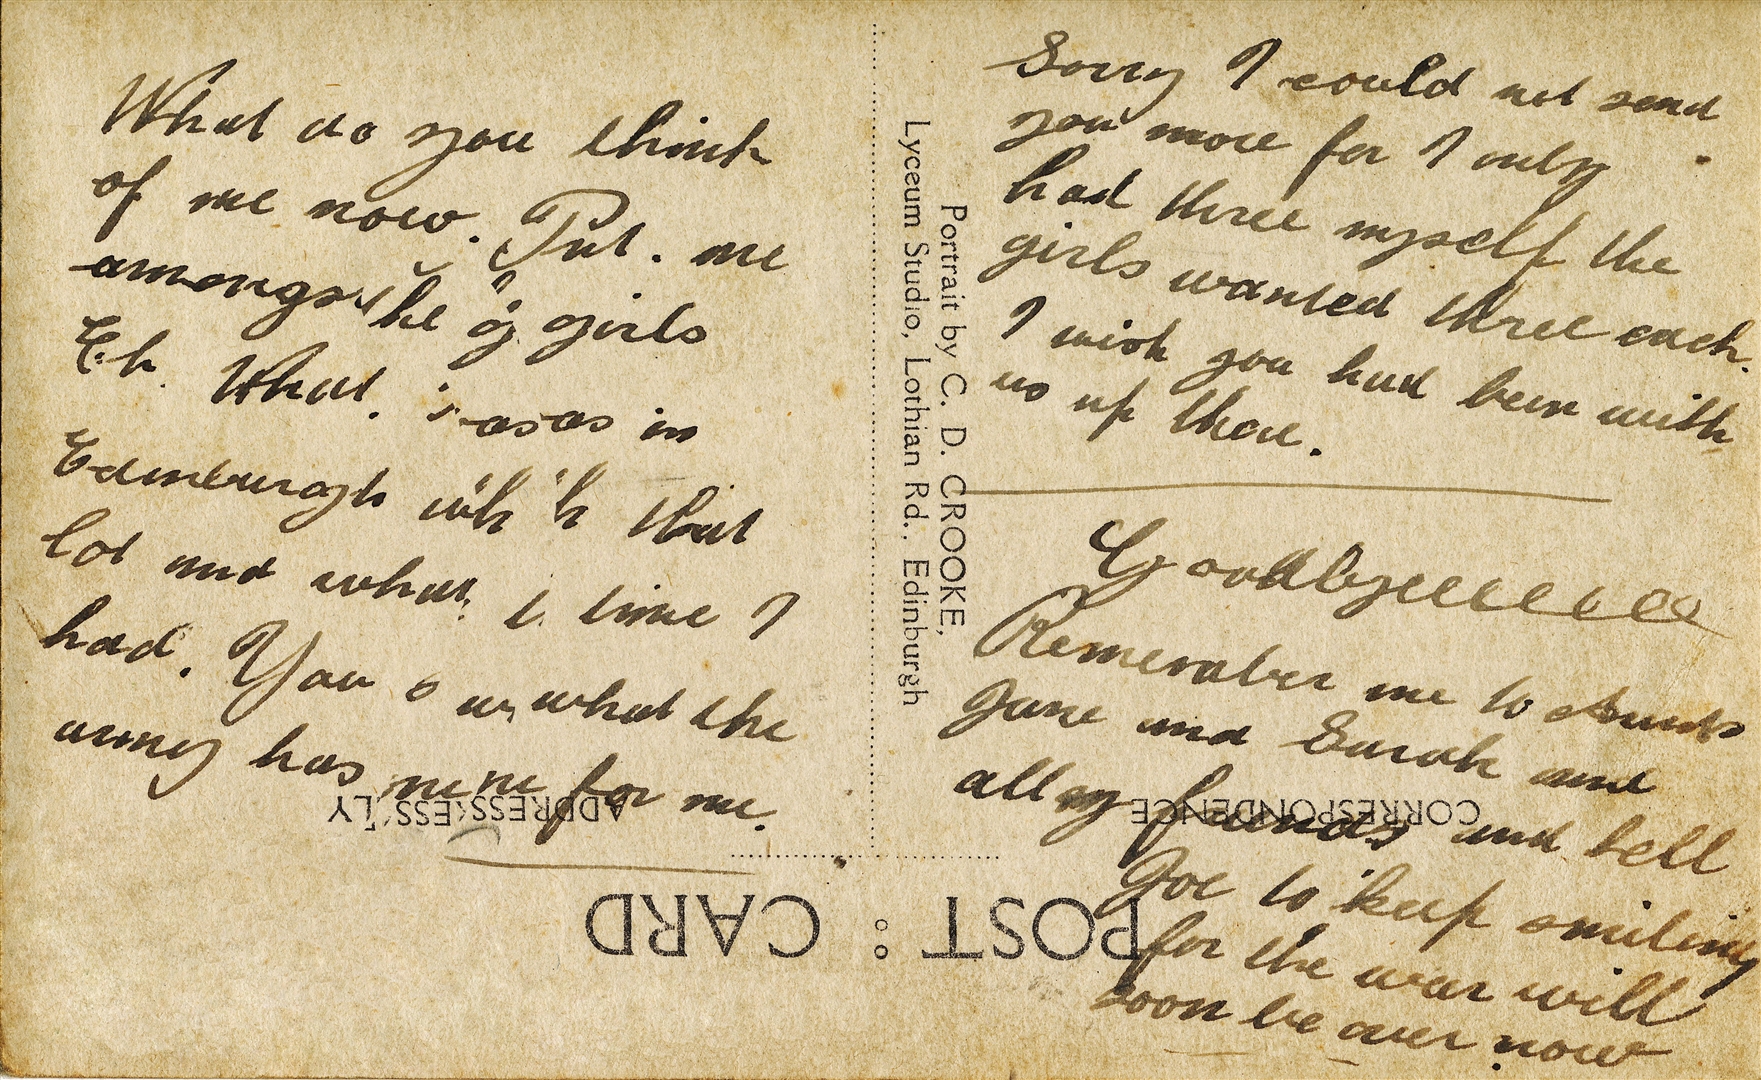 What do you think
of me now. Put. me
amongst the girls
Eh. What. I was in
Edinburgh with that
lot and what a time I
had. You know what the
army has done for me.
Sorry I could not send
you more for I only
had three myself the
girls wanted three each.
I wish you had been with
us up there.
Goodbyeeeeeeee
Remember me to Aunts
Jane and Sarah and
all my friends and tell
Joe to keep smiling
for the war will
soon be over now
Portrait by C. D. CROOKE,
Lyceum Studio, Lothian Rd., Edinburgh
POST : CARD
CORRESPONDENCE
ADDRESS